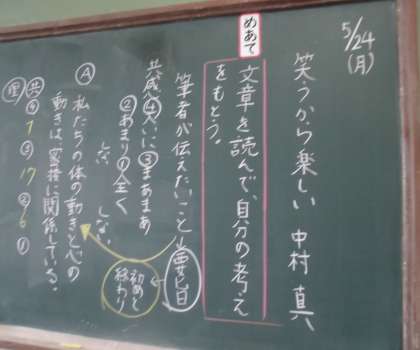 5/24
(月)
笑うから楽しい 中村 真
めあて
文章を読んで、自分の考え
をもとう。
筆者が伝えたいこと
要旨
初めと
終わり
共感 ④大いに ③まあまあ
②あまり ①全く
しない しない
Ⓐ
私たちの体の動きと心の
動きは、密接に関係している。
共 ④ 7 ③ 17 ② 6 ①
理